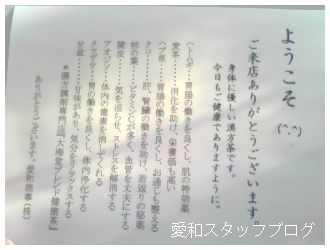 ようこそ (^.^)
ご来店ありがとうございます。
身体に優しい漢方茶です。
今日もご健康でありますように。
ハトムギ……胃腸の働きを良くし、肌の特効薬
麦茶……消化を助け、栄養価も高い
ハブ草……胃、腎臓の働きを良くし、お通じも整える
タコ……肝、腎臓の働きを助け、若返りの秘薬
柿の葉……ビタミンCが多く、血管を丈夫にする
健皮……気を巡らせ、ストレスを解消する
アオジソ……体内の毒素を消してくれる
クマザサ……胃の働きを良くし、体内を浄化する
甘草……甘味があり、気分をリラックスする
*漢方調剤専門店『大信堂ブレンド健康茶』
ありがとうございます。 愛和商事(株)
愛和スタッフブログ